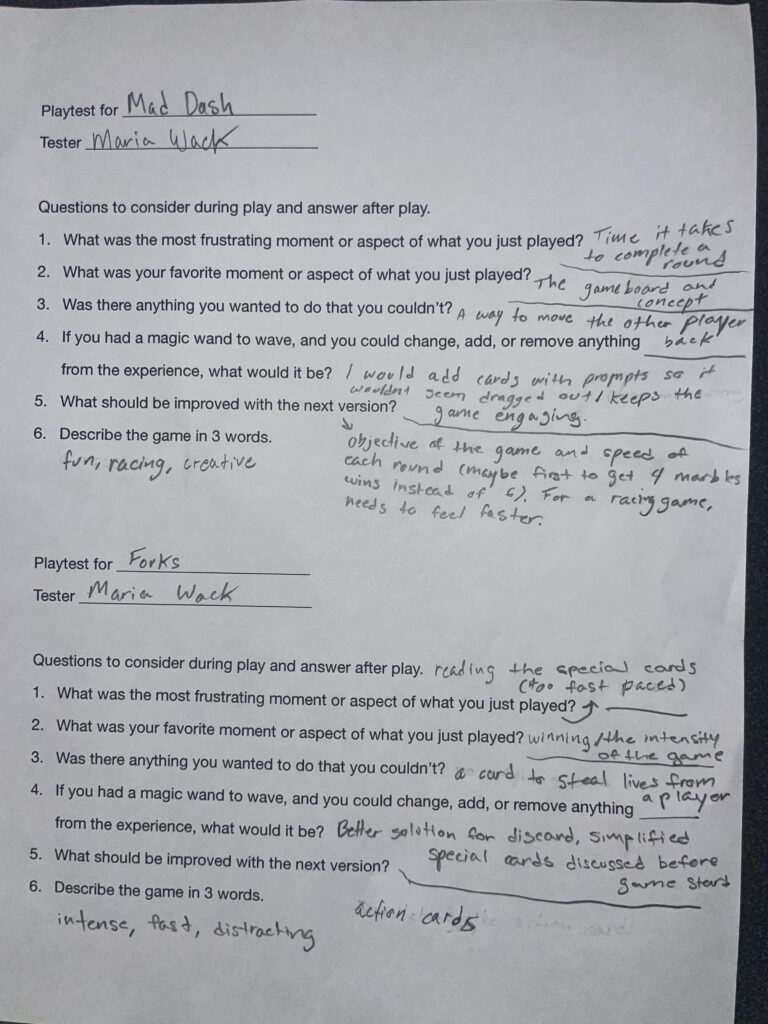 Playtest for Mad Dash
Tester Maria Wack
Questions to consider during play and answer after play.
1. What was the most frustrating moment or aspect of what you just played? Time it takes
to complete a
round
2. What was your favorite moment or aspect of what you just played? The gameboard and
concept
3. Was there anything you wanted to do that you couldn't? A way to move the other player
back
4. If you had a magic wand to wave, and you could change, add, or remove anything
from the experience, what would it be? I would add cards with prompts so it
wouldnt seem dragged out / keeps the
game engaging.
5. What should be improved with the next version?
objective of the game and speed of
each round (maybe first to get 4 marbles
wins instead of 6). For a racing game,
needs to feel faster.
6. Describe the game in 3 words.
fun, racing, creative
Playtest for Forks
Tester Maria Wack
Questions to consider during play and answer after play. reading the special cards
(too fast paced)
1. What was the most frustrating moment or aspect of what you just played?
2. What was your favorite moment or aspect of what you just played? winning/the intensity
of the game
3. Was there anything you wanted to do that you couldn't? a card to steal lives from
a player
4. If you had a magic wand to wave, and you could change, add, or remove anything
from the experience, what would it be? Better solution for discard, simplified
special cards discussed before
game start
5. What should be improved with the next version?
action cards
6. Describe the game in 3 words.
intense, fast, distracting